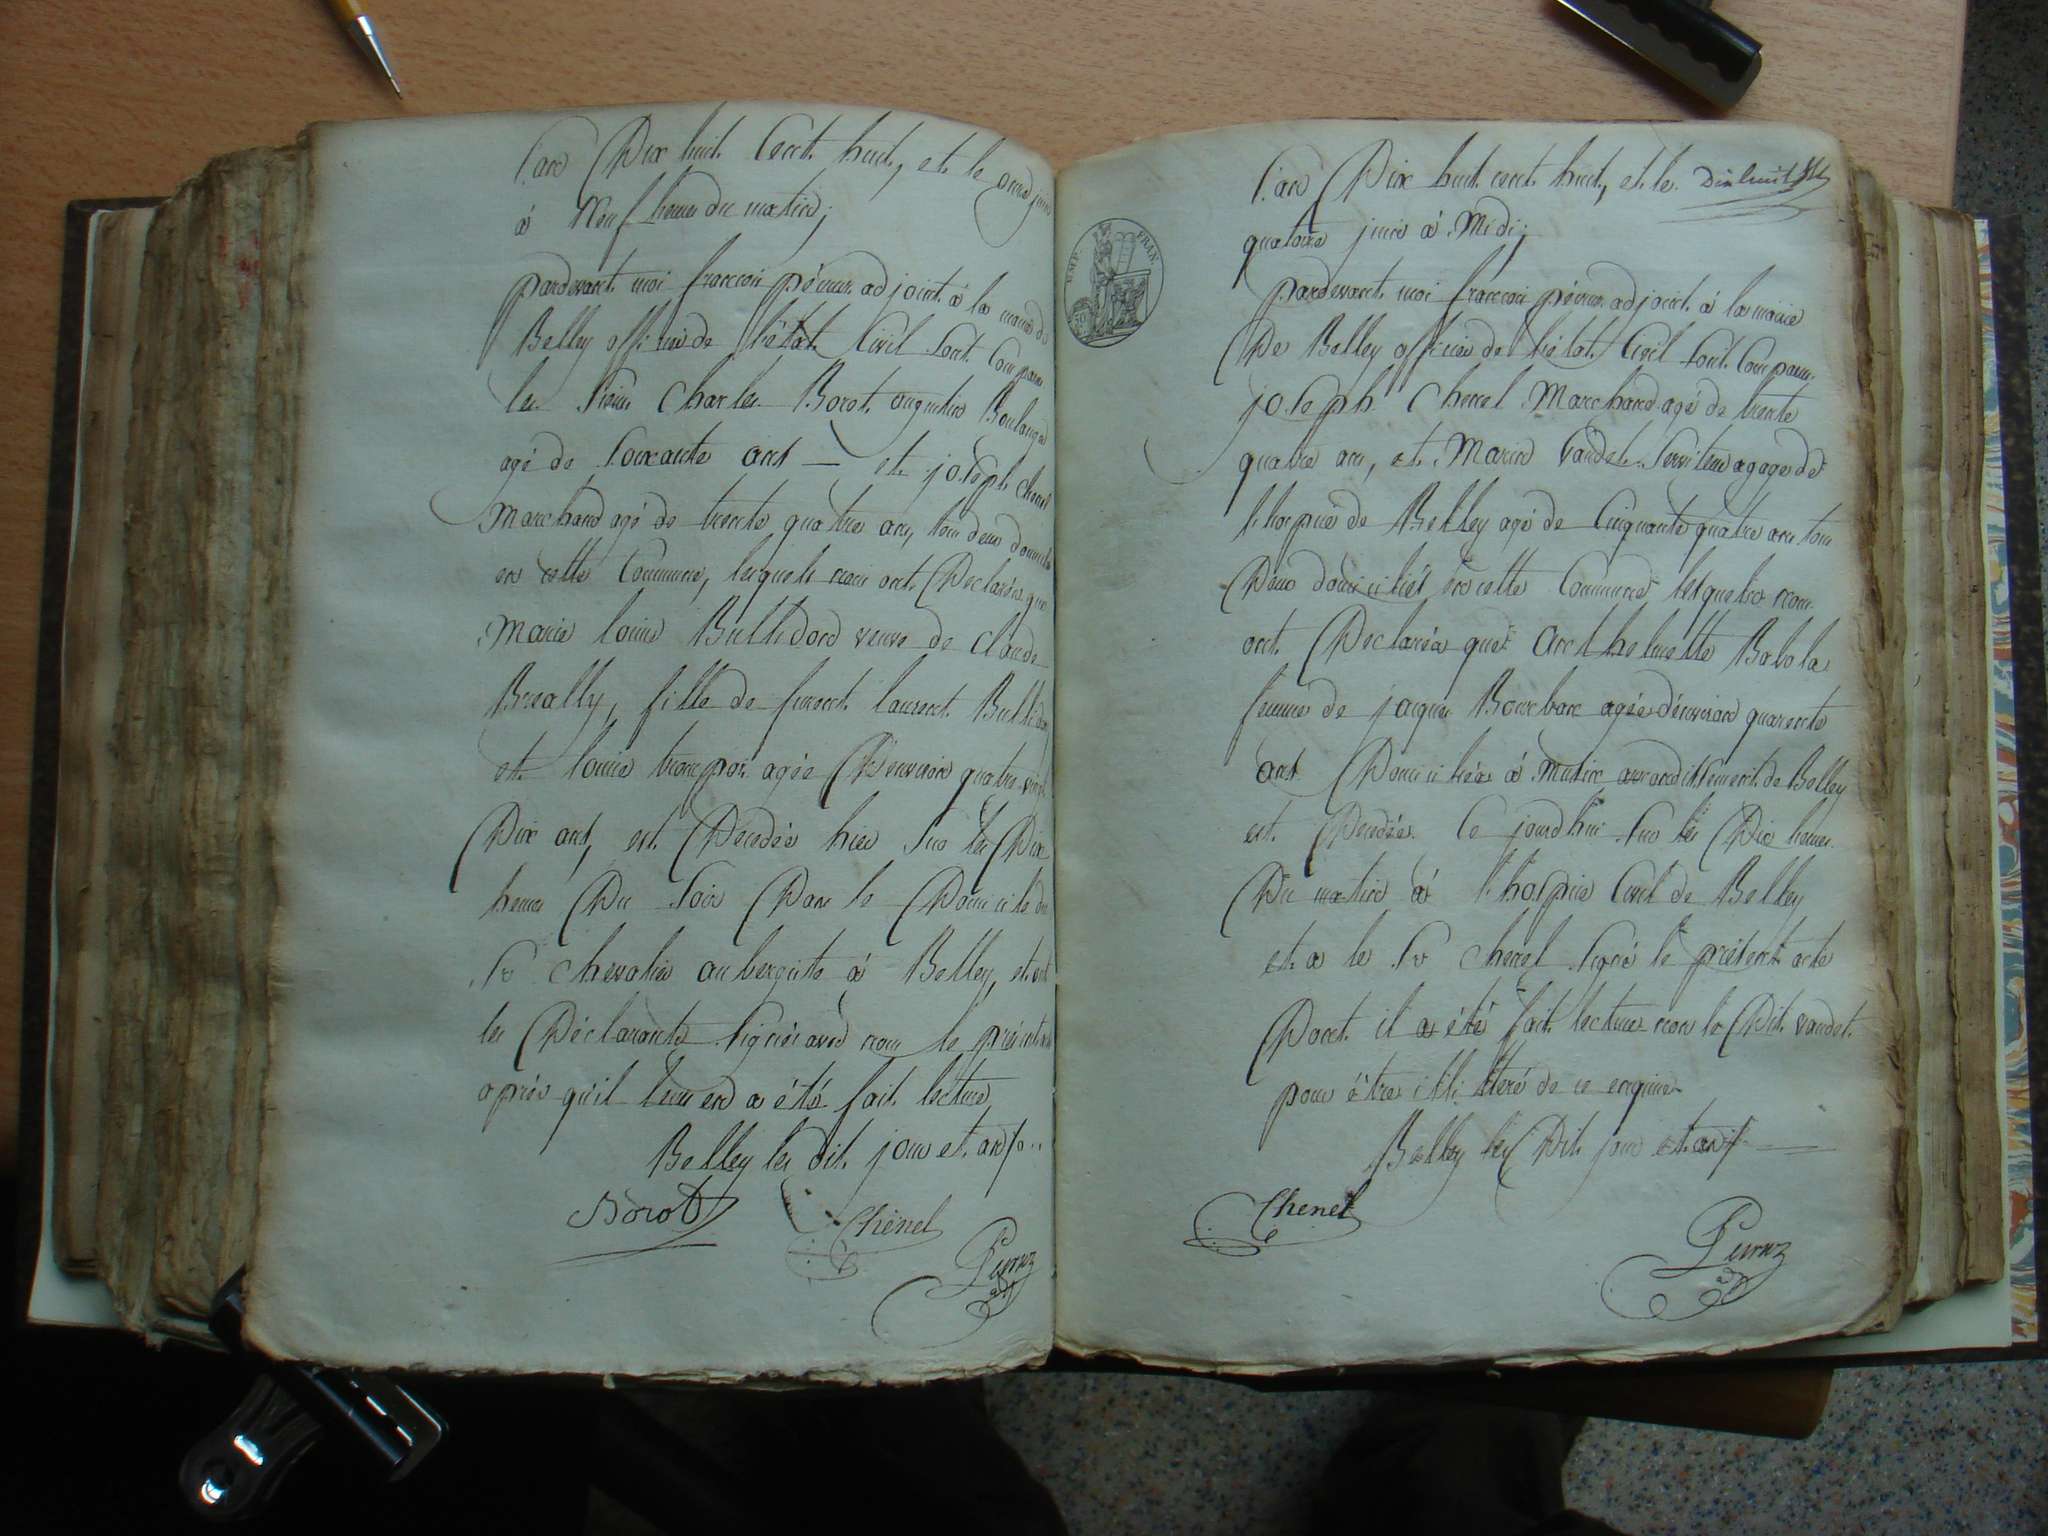 l'an Dix huit Cent huit, et le onze juin
à Neuf heures du matin;
pardevant moi françois péruz adjoint à la mairie de
Belley officier de l'état Civil sont Comparu
les sieurs Charles Borot Boulanger
agé de soixante ans — et joseph chenel
Marchand agé de trente quatre ans, tous deux domiciliés
en cette Commune, lesquels nous ont Déclarés que
Marie louise Bullidord veuve de claude
Breally, fille de furent laurent Bullidord
et louise agée D'environ quatre vingt
Dix ans, est Décedée hier sur les Dix
heures Du soir Dans le Domicile du
Sr chevalier aubergiste à Belley, et ont
les Déclarants signés avec nous le présent acte
après qu'il leur en a été fait lecture
Belley les dit jour et an
Borot Chenel
Peruz
l'an Dix huit cent huit, et le Dix huit
quatorze juin à Midi;
pardevant moi françois péruz adjoint à la mairie
De Belley officier de l'état Civil sont Comparu
joseph Chenel Marchand agé de trente
quatre ans, et Marin vaudet serviteur a gages de
l'hospice de Belley agé de Cinquante quatre ans tous
Deux domiciliés en cette Commune lesquels nous
ont Déclarés que Anthelmette Babola
femme de jacques Bourbon agée d'environ quarente
ans Domiciliée à arrondissement de Belley
est Décedée Ce jourd'hui sur les Dix heures
Du matin à l'hospice Civil de Belley
et a le Sr chenel signé le présent acte
Dont il a été fait lecture non le Dit vaudet
pour être illitteré de ce enquis
Belley les Dit jour et an
Chenel
Peruz
EMP. FRAN.